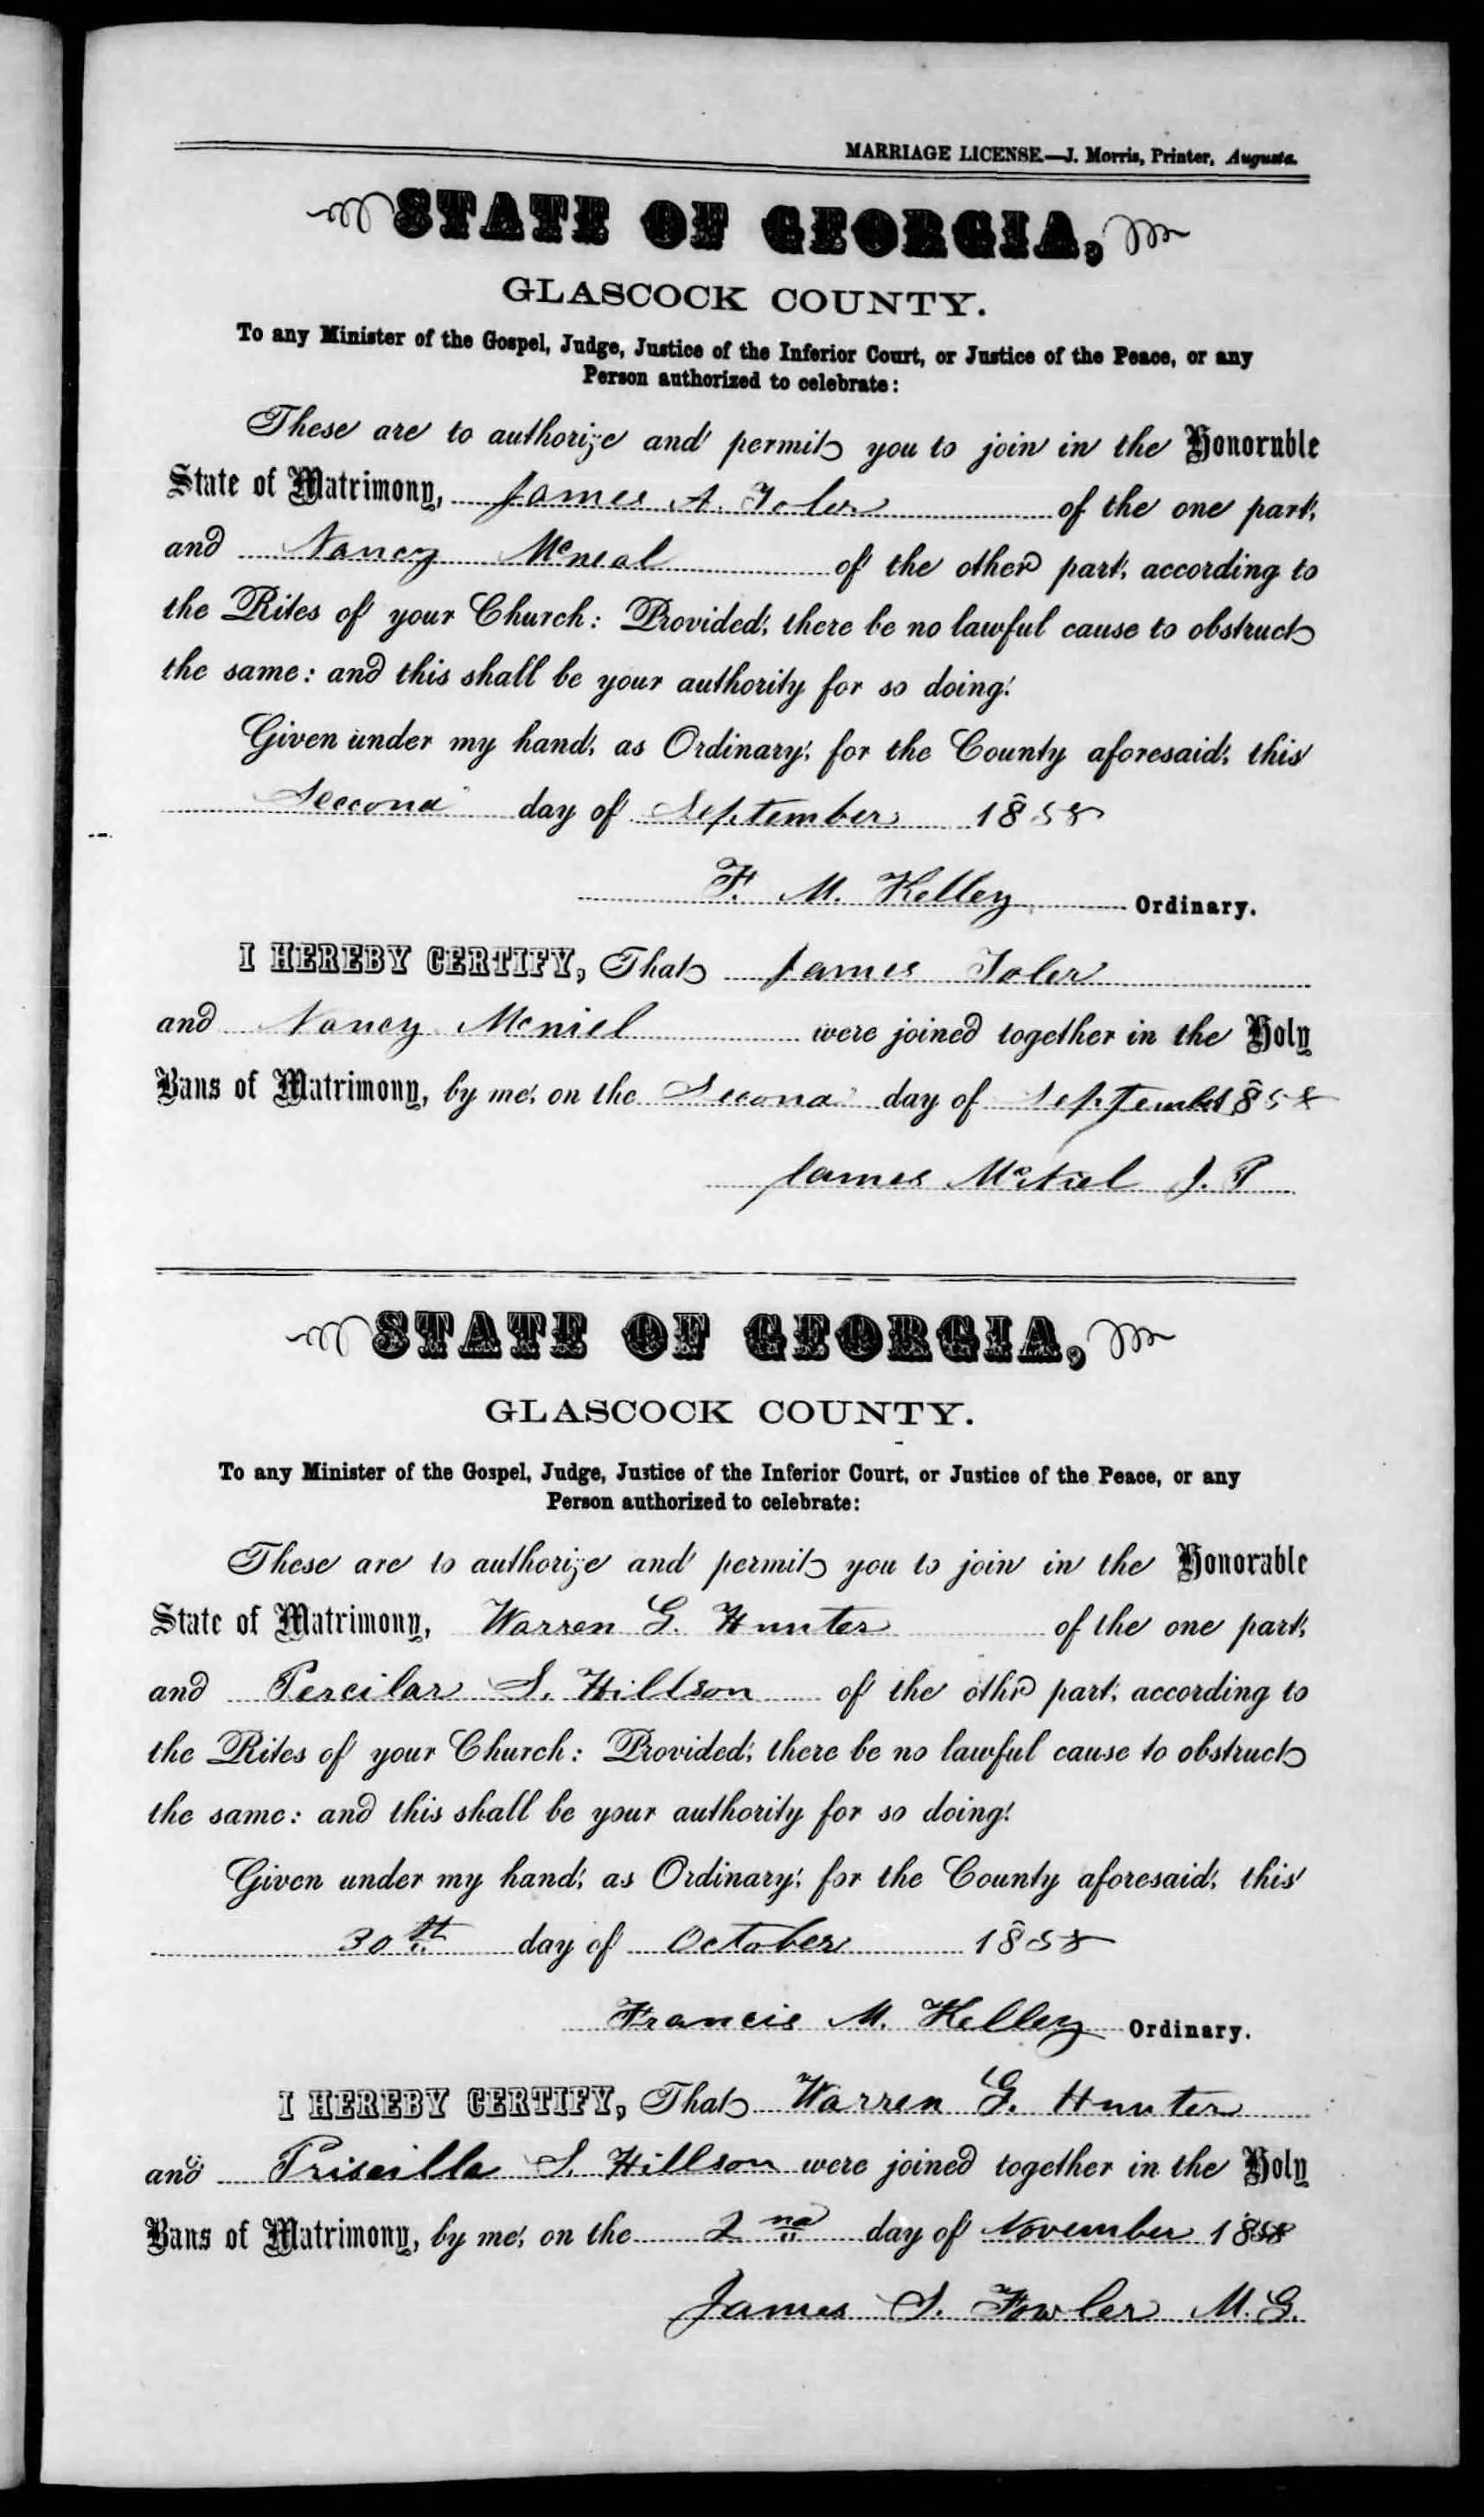 MARRIAGE LICENSE.—J. Morris, Printer, Augusta.
STATE OF GEORGIA,
GLASCOCK COUNTY.
To any Minister of the Gospel, Judge, Justice of the Inferior Court, or Justice of the Peace, or any
Person authorized to celebrate:
These are to authorize and permit you to join in the Honoruble
State of Matrimony, James A. Toler of the one part,
and Nancy Mcneal of the other part, according to
the Rites of your Church: Provided, there be no lawful cause to obstruct
the same: and this shall be your authority for so doing.
Given under my hand, as Ordinary, for the County aforesaid, this
Seccond day of September 1858
F. M. Kelley Ordinary.
I HEREBY CERTIFY, That James Toler
and Nancy Mcniel were joined together in the Holy
Bans of Matrimony, by me, on the Second day of September 1858
James McNiel J. P
STATE OF GEORGIA,
GLASCOCK COUNTY.
To any Minister of the Gospel, Judge, Justice of the Inferior Court, or Justice of the Peace, or any
Person authorized to celebrate:
These are to authorize and permit you to join in the Honorable
State of Matrimony, Warren G. Hunter of the one part,
and Percilar S. Hillson of the othr part, according to
the Rites of your Church: Provided, there be no lawful cause to obstruct
the same: and this shall be your authority for so doing.
Given under my hand, as Ordinary, for the County aforesaid, this
30th day of October 1858
Francis M. Kelley Ordinary.
I HEREBY CERTIFY, That Warren G. Hunter
and Priscilla S. Hillson were joined together in the Holy
Bans of Matrimony, by me, on the 2nd day of November 1858
James S. Fowler M. G.